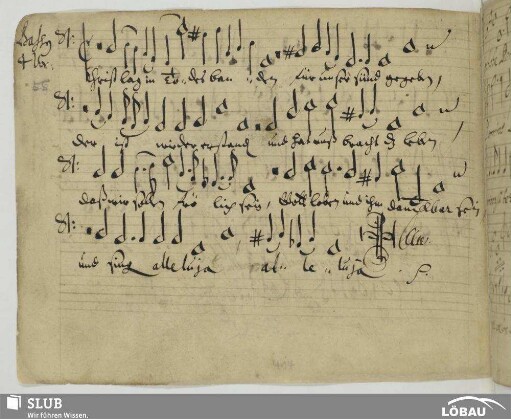 Bass9
4 ter
55
Christ lag in To= des ban= den für unser sünd gegeben,
der ist wieder erstand und hat uns bracht dz leben,
daß wir sollen frö lich sein, Gott loben und ihm danckbar sein
und sing alleluja al= le= luja
SLUB
Wir führen Wissen.
LÖBAU